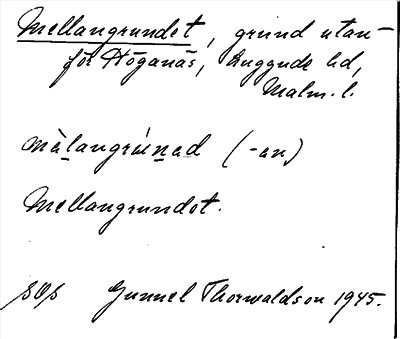 Mellangrundet, grund utan-
för Höganäs, Luggude hd,
Malm. l.
mälangrúnad (-an)
Mellangrundet.
SOS Gunnel Thorwaldson 1945.